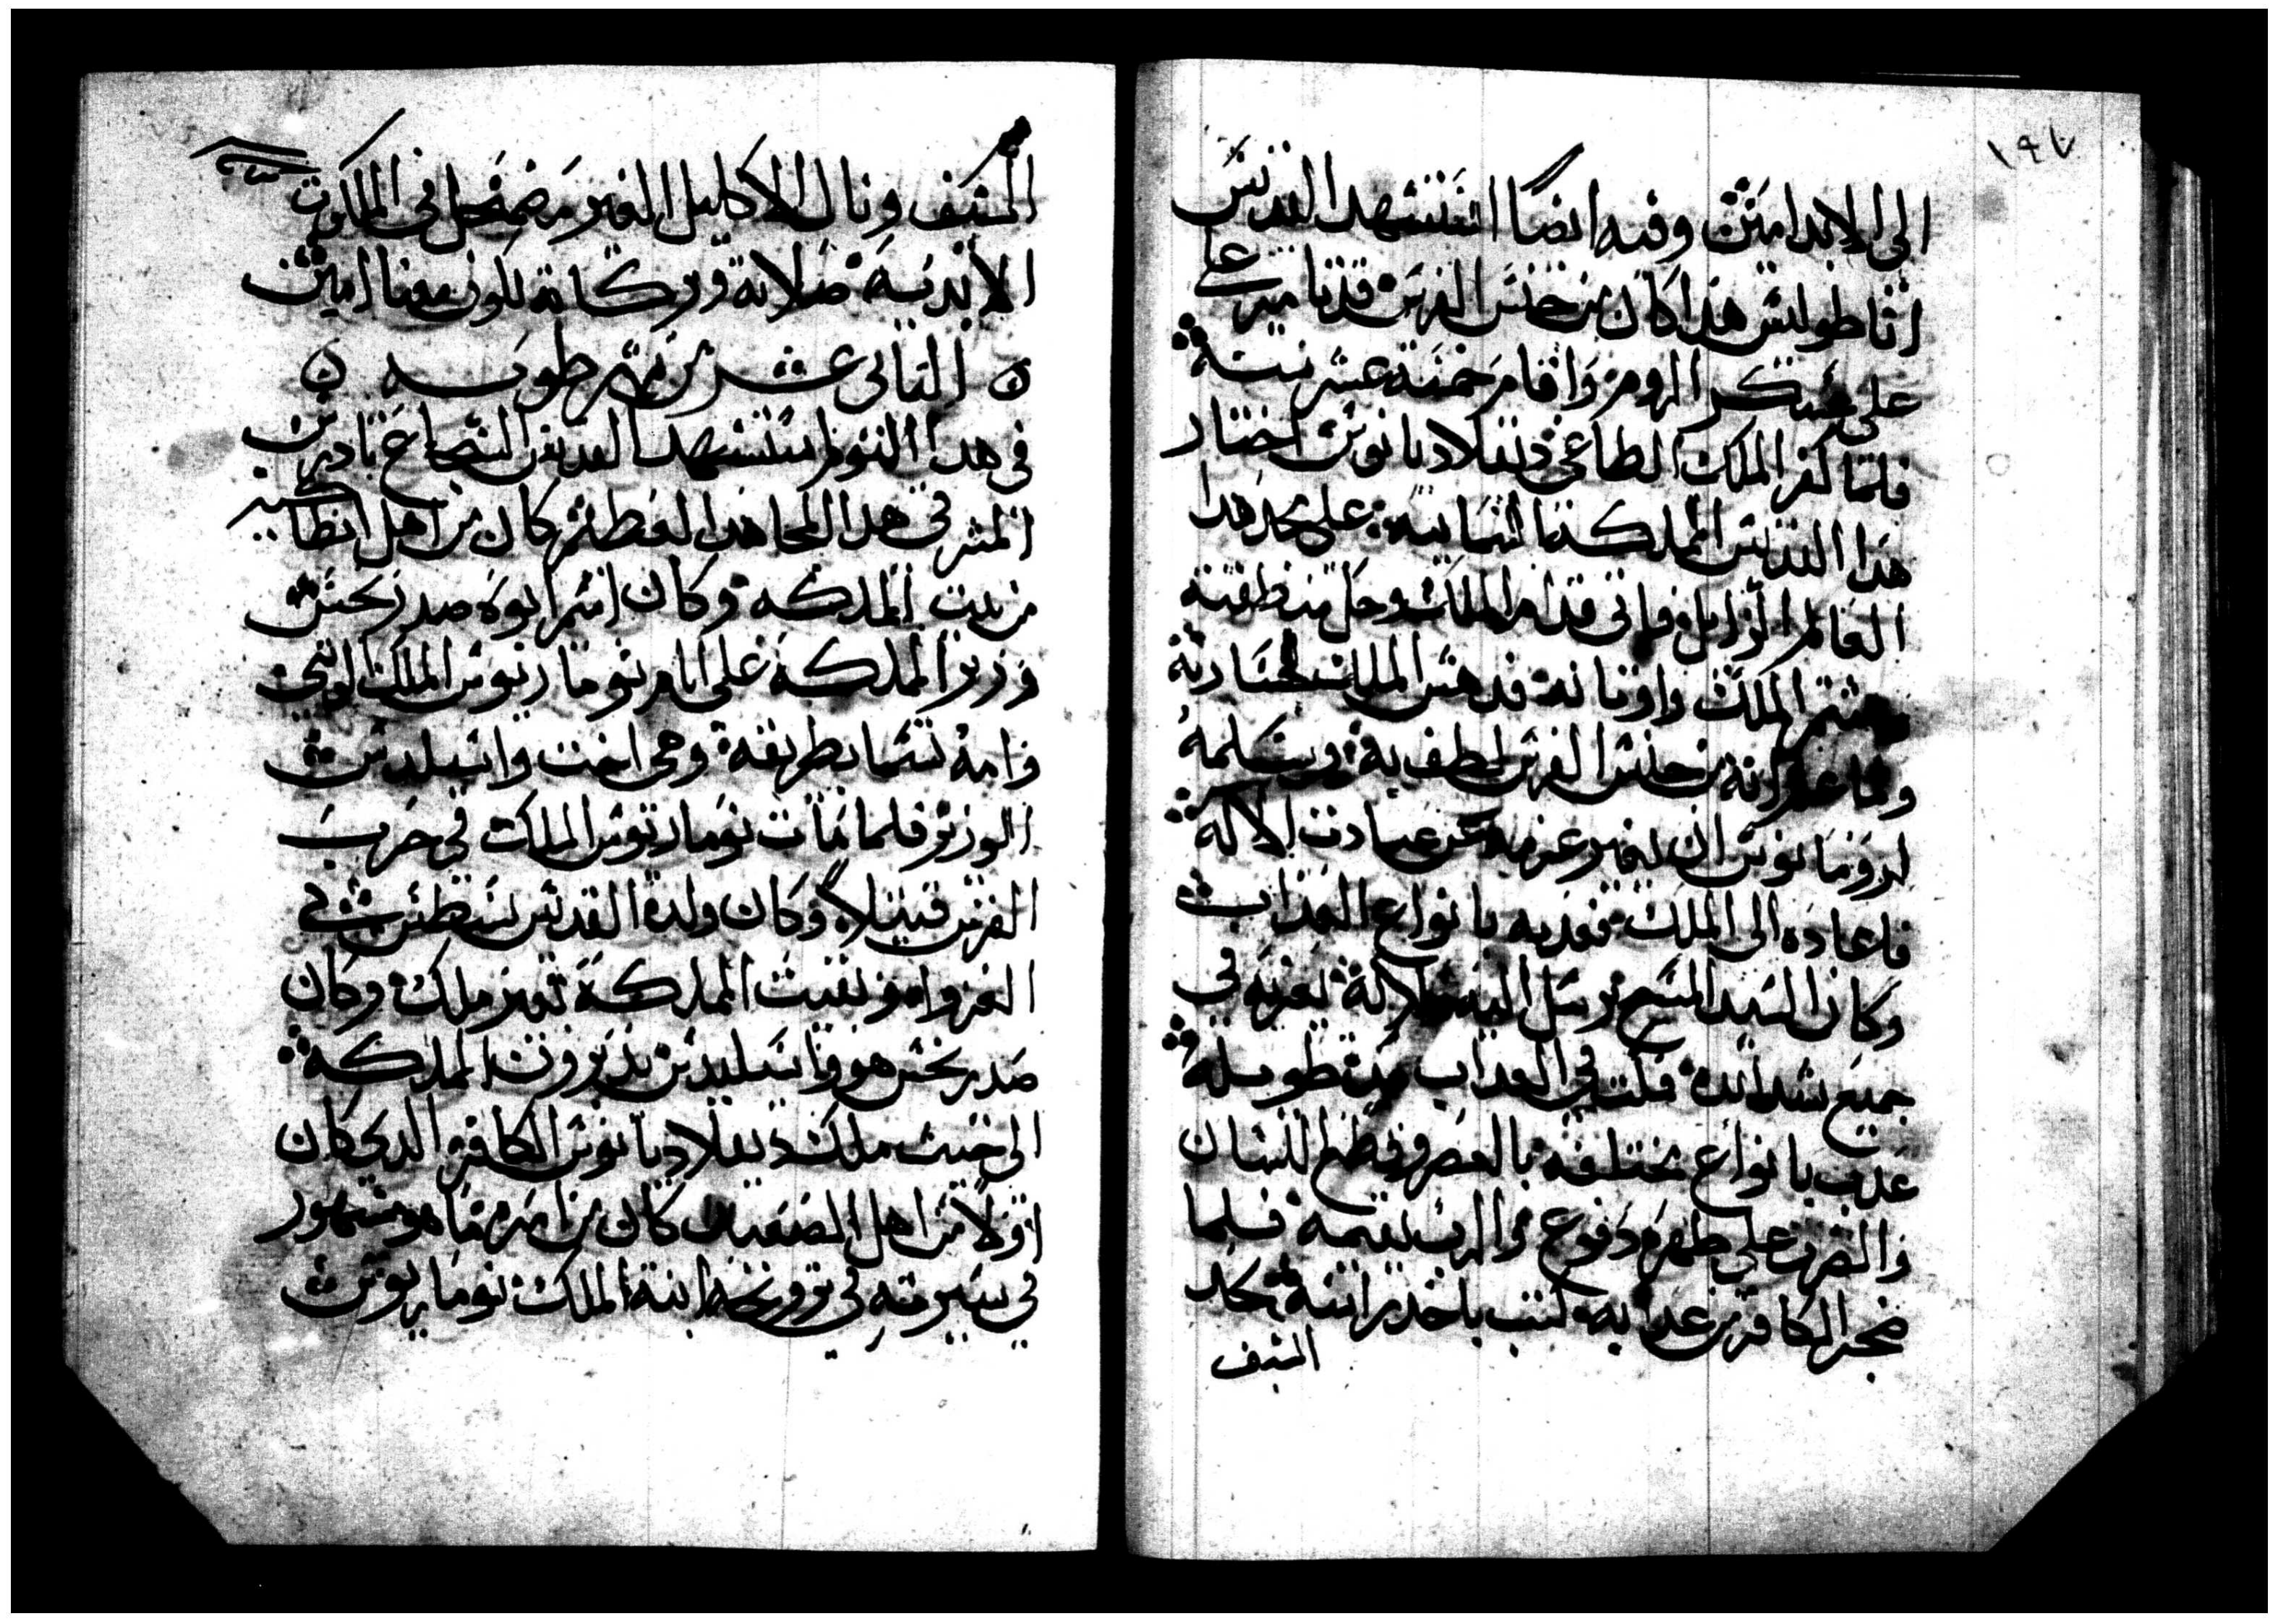 ١٩٧
الى الابد امين وفيه ايضا استشهد القديس
اناطوليس هذا كان من جنس الفرس قدتامير على
على عسكر الروم واقام خمسة عشر سنة
فلما كفر الملك الطاغي دقلاديانوس اختار
هدا القديس المملكة السمايية على مجد هدا
العالم الزايل فاتى قدام الملك وحل منطقته
وشتم الملك واوثانه فدهش الملك لجسارته
ولما علم انه من جنس الفرس لطف به وسلمه
لرومانوس ان يغير عزمه عن عبادت الاله
فاعاده الى الملك فعدبه بانواع العداب
وكان السيد المسيح يرسل اليه ملاكه يعزيه في
جميع شدايده فلبت في العداب مدة طويلة
عدب بانواع مختلفة بالعصر وقطع اللسان
والضرب على ظهره دفوع والرب يقيمه فلما
ضجر الكافر من عدابه كتب باخد راسه بحد
السيف
السيف ونال الاكليل الغير مضمحل في الملكوت
الابدية صلاته وبركاته تكون معنا امين
التاني عشر من شهر طوبه
في هدا اليوم استشهد القديس الشجاع تادرس
المشرقي هدا المجاهد العظيم كان من اهل انطاكيه
من بيت المملكه وكان اسم ابوه صدريخس
وزير المملكة على ايام نوماريوس الملك الوتني
وامه تسما بطريقة وهي اخت واسيليدس
الوزير فلما مات نوماريوس الملك في حرب
الفرس قتيلا وكان ولده القديس يسطس في
الغزو ايضا بقيت المملكة بغير ملك وكان
صدريخس هو وواسيليدس يدبرون المملكه
الى حيت ملك دقلاديانوس الكافر الدي كان
اولا من اهل الصعيد كان من امره ما هو مشهور
في سيرته في تزويجه ابنة الملك نوماريوس